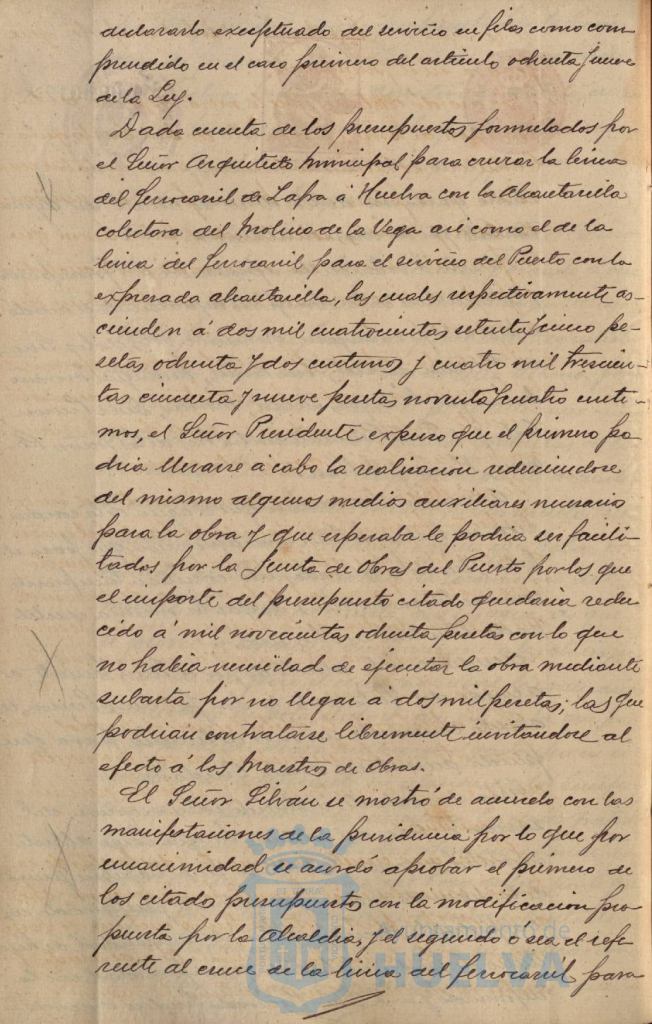 declararlo exceptuado del servicio en filas como com-
prendido en el caso primero del artículo ochenta y nueve
de la Ley.
Dada cuenta de los presupuestos formulados por
el Señor Arquitecto Municipal para cruzar la linea
del ferrocarril de Zafra á Huelva con la Alcantarilla
colectora del Molino de la Vega asi como el de la
linea del ferrocarril para el servicio del Puerto con la
expresada alcantarilla, las cuales respectivamente as-
cienden á dos mil cuatrocientas setenta y cinco pe-
setas ochenta y dos centimos y cuatro mil trescien-
tas cincuenta y nueve pesetas noventa y cuatro centi-
mos, el Señor Presidente expuso que el primero po-
dria llevarse á cabo la realizacion reduciendose
del mismo algunos medios auxiliares necesarios
para la obra y que esperaba le podria ser facili-
tados por la Junta de Obras del Puerto por los que
el importe del presupuesto citado quedaria redu-
cido á mil novecientas ochenta pesetas con lo que
no habia necesidad de ejecutar la obra mediante
subasta por no llegar á dos mil pesetas; las que
podrian contratarse libremente invitandose al
efecto á los Maestros de Obras.
El Señor Silván se mostró de acuerdo con las
manifestaciones de la presidencia por lo que por
unanimidad se acordó aprobar el primero de
los citado presupuestos con la modificacion pro-
puesta por la Alcaldia, y el segundo o sea el refe-
rente al cruce de la linea del ferrocarril para
Ayuntamiento de
HUELVA